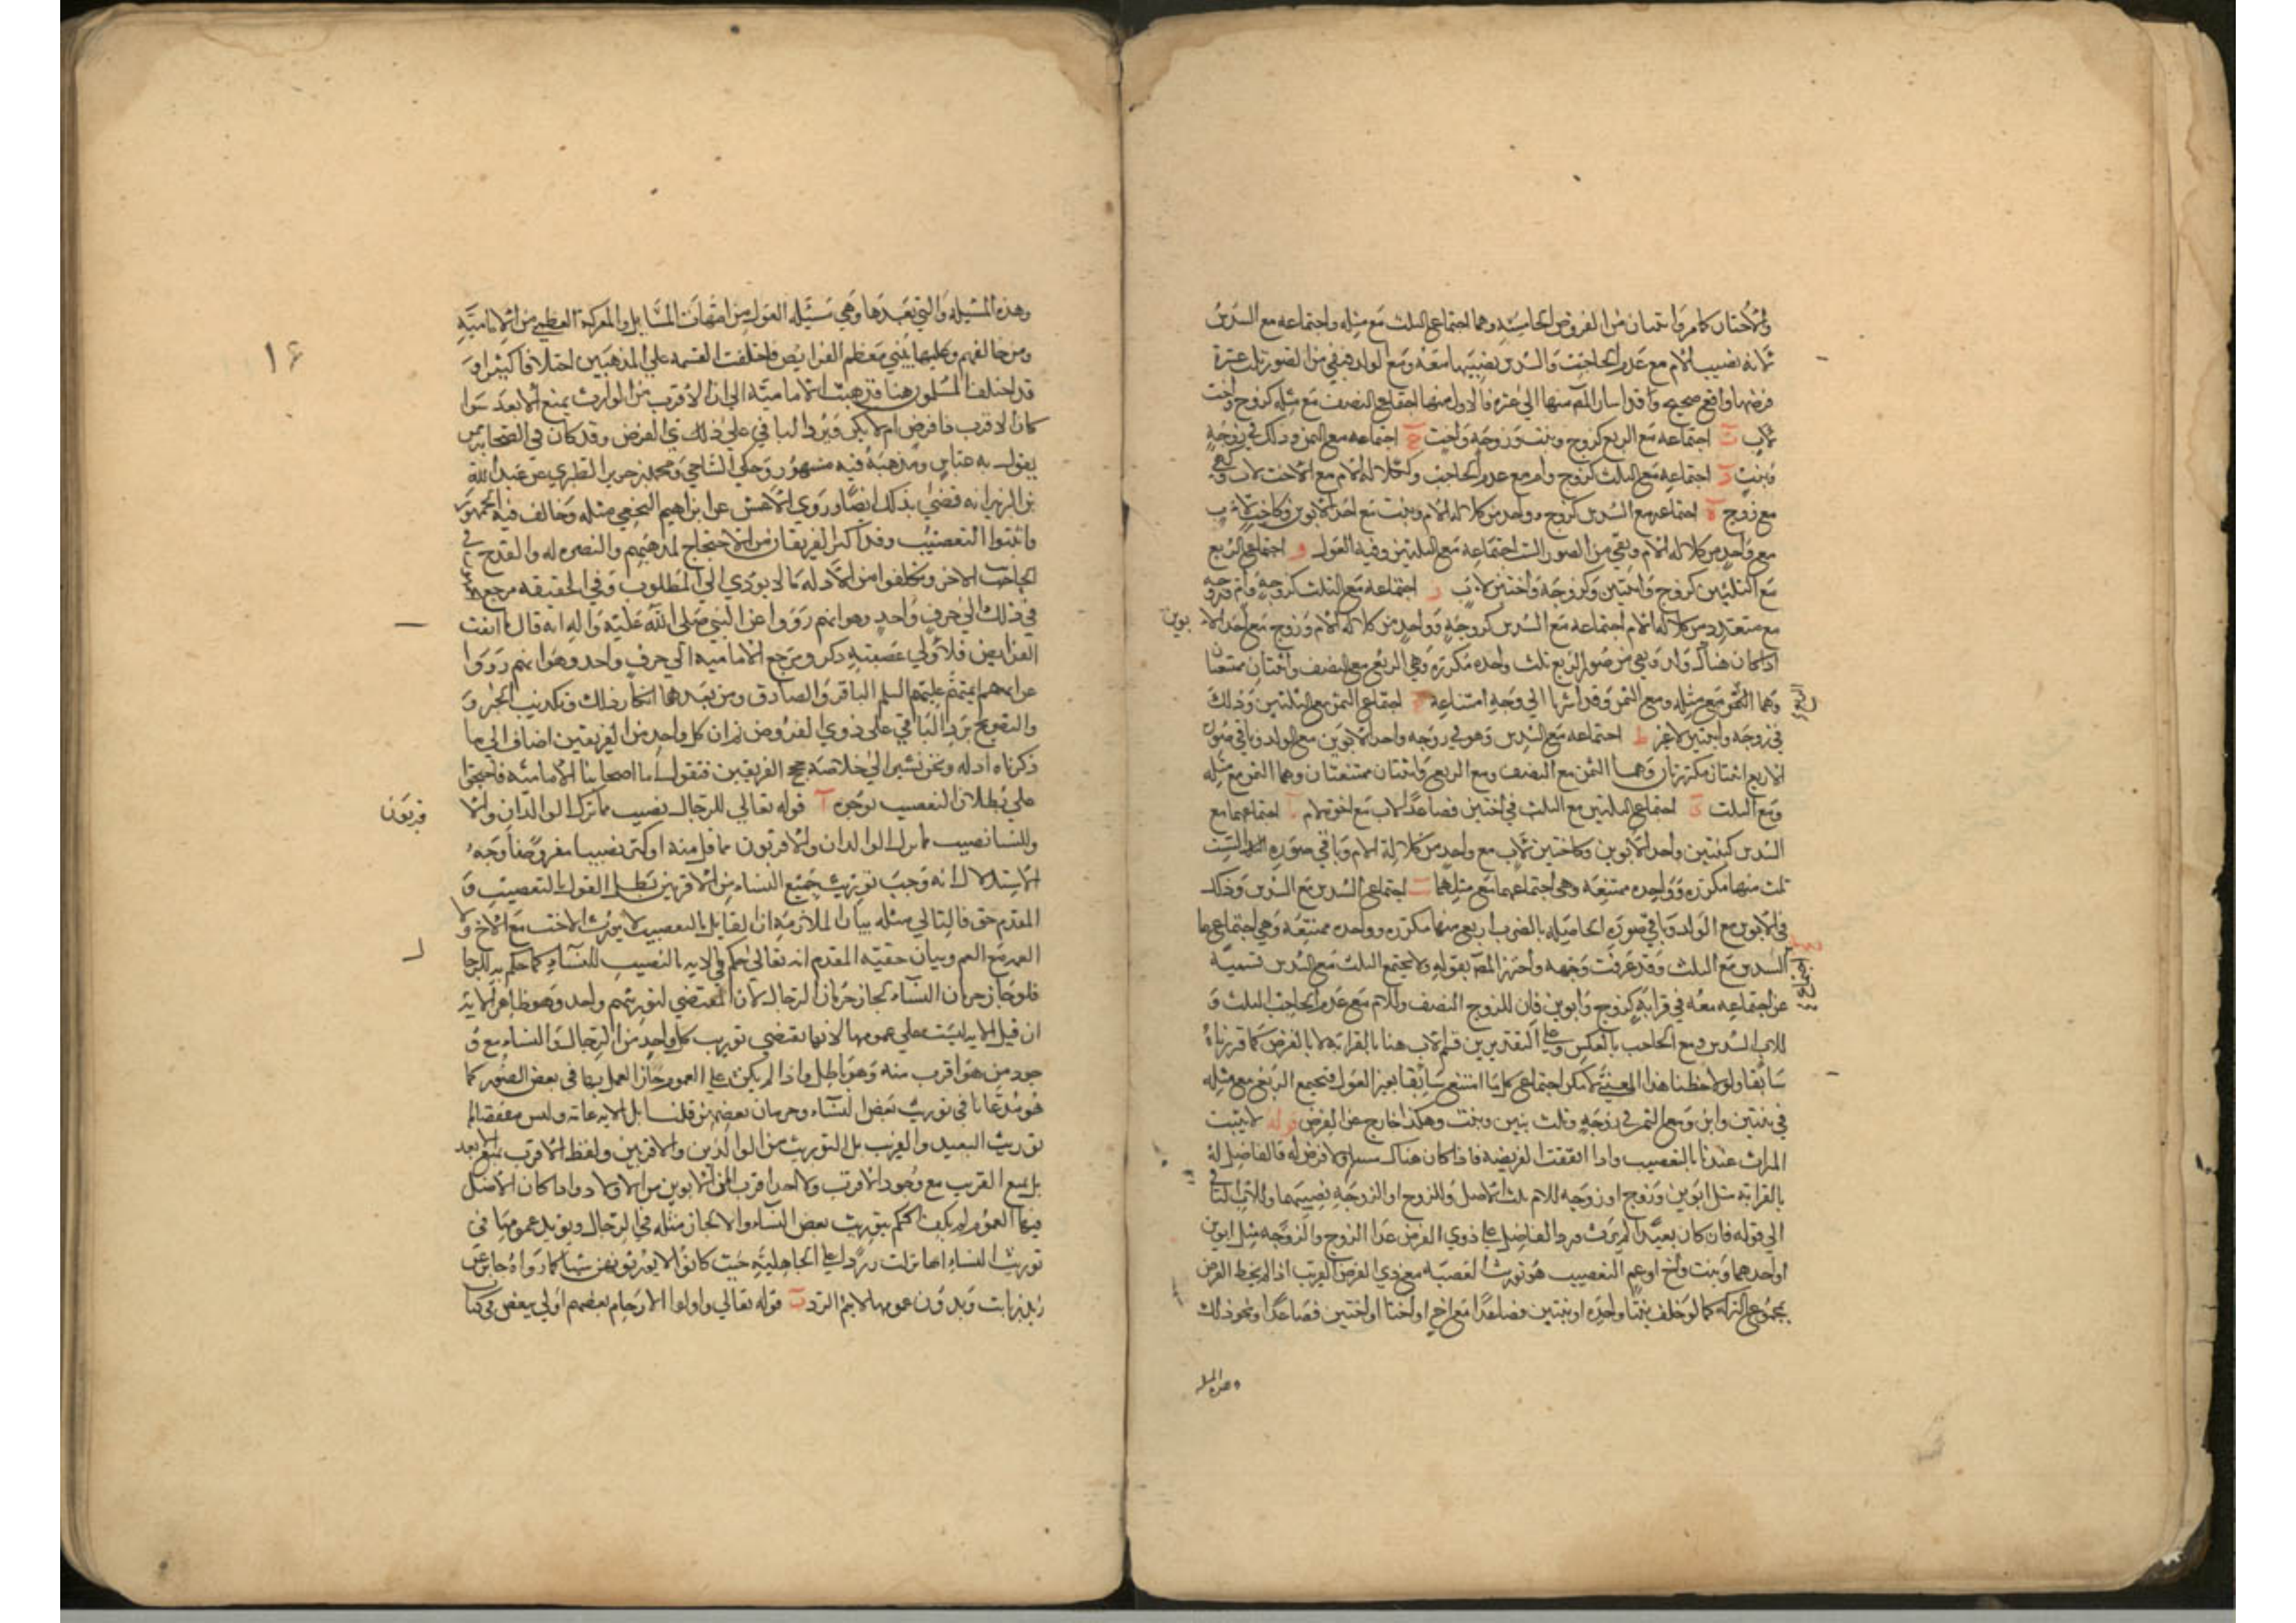 والاختان كما مر واثنتان من الفروض الخامسة وهما اجتماع الثلث مع مثله واجتماعه مع السدس
لانه نصيب الام مع عدم الحاجب والسدس نصيبها معه ومع الولد فبقي من الصور ثلث عشرة
فرضها واقع صحيح وقد اشار المص منها الى عشرة فالاول منها اجتماع النصف مع مثله كزوج واخت
لاب ب اجتماعه مع الربع كزوج وبنت وزوجة واخت ج اجتماعه مع الثمن وذلك في زوجة
وبنت د اجتماعه مع الثلث كزوج وام مع عدم الحاجب وككلالة الام مع الاخت لاب
مع زوج ه اجتماعه مع السدس كزوج وواحد من كلالة الام وبنت مع احد الابوين وكاخت لاب
مع واحد من كلالة الام وبقي من الصور الست اجتماعه مع الثلثين وفيه العول و اجتماع الربع
مع الثلثين كزوج وابنتين وكزوجة واختين لاب ز اجتماعه مع الثلث كزوجة وام وزوجة
مع متعدد من كلالة الام اجتماعه مع السدس كزوجة وواحد من كلالة الام وزوج مع احد الا بوين
اذا كان هناك ولد وبقي من صور الربع ثلث واحدة مكررة وهي الربع مع النصف واثنتان ممتنعتان
وهما الثمن مع مثله ومع الثمن وقد اشرنا الى وجه امتناعه ح اجتماع الثمن مع الثلثين وذلك
الربع
في زوجة وابنتين لاغير ط اجتماعه مع السدس وهو في زوجة واحد الابوين مع الولد وباقي صوره
الاربع اثنتان مكررتان وهما الثمن مع النصف ومع الربع واثنتان ممتنعتان وهما الثمن مع مثله
ومع الثلث ى اجتماع الثلثين مع الثلث في اختين فصاعدا لاب مع اخوة لام اجتماعهما مع
السدس كبنتين واحد الابوين وكاختين لاب مع واحد من كلالة الام وباقي صوره الست
ثلث منها مكررة وواحدة ممتنعة وهي اجتماعهما مع مثلهما اجتماع السدس مع السدس وذلك
في الابوين مع الولد وباقي صوره الحاصلة بالضرب اربع منها مكررة وواحدة ممتنعة وهي اجتماعها
السدس مع الثلث وقد عرفت وجهه واحترز المص بقوله ولا يجتمع الثلث مع السدس تسمية
عن اجتماعه معه في قرابة كزوج وابوين فان للزوج النصف وللام مع عدم الحاجب الثلث و
للاب السدس ومع الحاجب بالعكس وعلى التقديرين فللاب هنا بالقرابة لا بالفرض كما قررناه
سابقا ولو لاحظنا هذا المعنى لامكن اجتماع كلما امتنع سابقا بغير العول فيجتمع الربع مع مثله
في بنتين وابن ومع الثمن في زوجة وثلث بنين وبنت وهكذا خارج عن الفرض قوله لا يثبت
الميراث عندنا بالتعصيب واذا ابقت الفريضة فاذا كان هناك مساو لا فرض له فالفاضل له
بالقرابة مثل ابوين وزوج او زوجة للام ثلث الاصل وللزوج او الزوجة نصيبهما وللاب الباقي
الى قوله فان كان بعيدا لم يرث ورد الفاضل على ذوي الفرض عدا الزوج والزوجة مثل ابوين
او احدهما وبنت واخ او عم التعصيب هو توريث العصبة مع ذي الفرض القريب اذا لم يحط الفرض
بمجموع التركة كما لو خلف بنتا واحدة او بنتين فصاعدا مع اخ او اختا او اختين فصاعدا ونحو ذلك
وهذه المسئلة
١٤
وهذه المسئلة والتي بعدها وهي مسئلة العول من امهات المسايل والمعركة العظمى من الامامية
ومن خالفهم وعليها يبنى معظم الفرايض فاختلفت القسمة على المذهبين اختلافا كثيرا و
قد اختلف المسلمون هنا فذهبت الامامية الى ان الاقرب من الوارث يمنع الابعد سوا
كان الاقرب ذا فرض ام لا يكن ويرد الباقي على ذلك ذي الفرض وقد كان في الصحابة من
يقول به عباس ومذهبه فيه مشهور وحكى الشاحي ومحمد بن جرير الطبري عن عبد الله
بن الزبير انه قضى بذلك ايضا وروى الاعمش عن ابراهيم النخعي مثله وخالف فيه الجمهور
واثبتوا التعصيب وقد اكثر الفريقان من الاحتجاج لمذهبهم والنصرة له والقدح في
الجانب الاخر وتكلفوا من الادلة ما لا يؤدي الى المطلوب وفي الحقيقة مرجع
في ذلك الى حرف واحد وهو انهم رووا عن النبي صلى الله عليه واله انه قال ما ابقت
الفرايض فلاولي عصبة ذكر ومرجع الامامية الى حرف واحد وهو انهم رووا
عن ايمتهم عليهم السلم الباقر والصادق ومن بعدهما انكار ذلك وتكذيب الخبر و
والتصريح برد الباقي على ذوي الفروض ثم ان كل واحد من الفريقين اضاف الى ما
ذكرناه ادلة ونحن نشير الى خلاصة حجج الفريقين فنقول اما اصحابنا الامامية فاحتجوا
على بطلان التعصيب بوجوه ا قوله تعالى للرجال نصيب مما ترك الوالدان والا قربون
وللنسا نصيب مما ترك الوالدان والاقربون مما قل منه او كثر نصيبا مفروضا وجه
الاستدلال انه وجب توريث جميع النساء من الاقربين بطل القول بالتعصيب و
المقدم حق فالتالي مثله بيان الملازمة ان القايل بالتعصيب لا يورث الاخت مع الاخ ولا
العمة مع العم وبيان حقية المقدم انه تعالى حكم في الاية بالنصيب للنساء كما حكم به للرجا ل
فلو جاز حرمان النساء لجاز حرمان الرجال لان المقتضي لتوريثهم واحد وهو ظاهر الاية
ان قيل الاية ليست على عمومها لانها تقتضي توريث كل واحد من الرجال والنساء مع و
جود من هو اقرب منه وهو باطل واذا لم يكن على العموم جاز العمل بها في بعض الصور كما
هو مدعانا في توريث بعض النساء وحرمان بعضهن قلنا بل الاية عامة وليس مقتضاها
توريث البعيد والقريب بل التوريث من الوالدين والاقربين ولفظ الاقرب يمنع الابعد
بل يمنع القريب مع وجود الاقرب ولا احد اقرب الى الابوين من الاولاد واذا كان الاصل
فيها العموم لم يكف الحكم بتوريث بعض النساء والا لجاز مثله في الرجال ويؤيد عمومها في
توريث النساء انها نزلت ردا على الجاهلية حيث كانوا لا يورثونهن شيئا كما رواه جابر عن
زيد بن ثابت وبدون عمومها لا يتم الرد ب قوله تعالى واولوا الارحام بعضهم اولى ببعض في كتاب